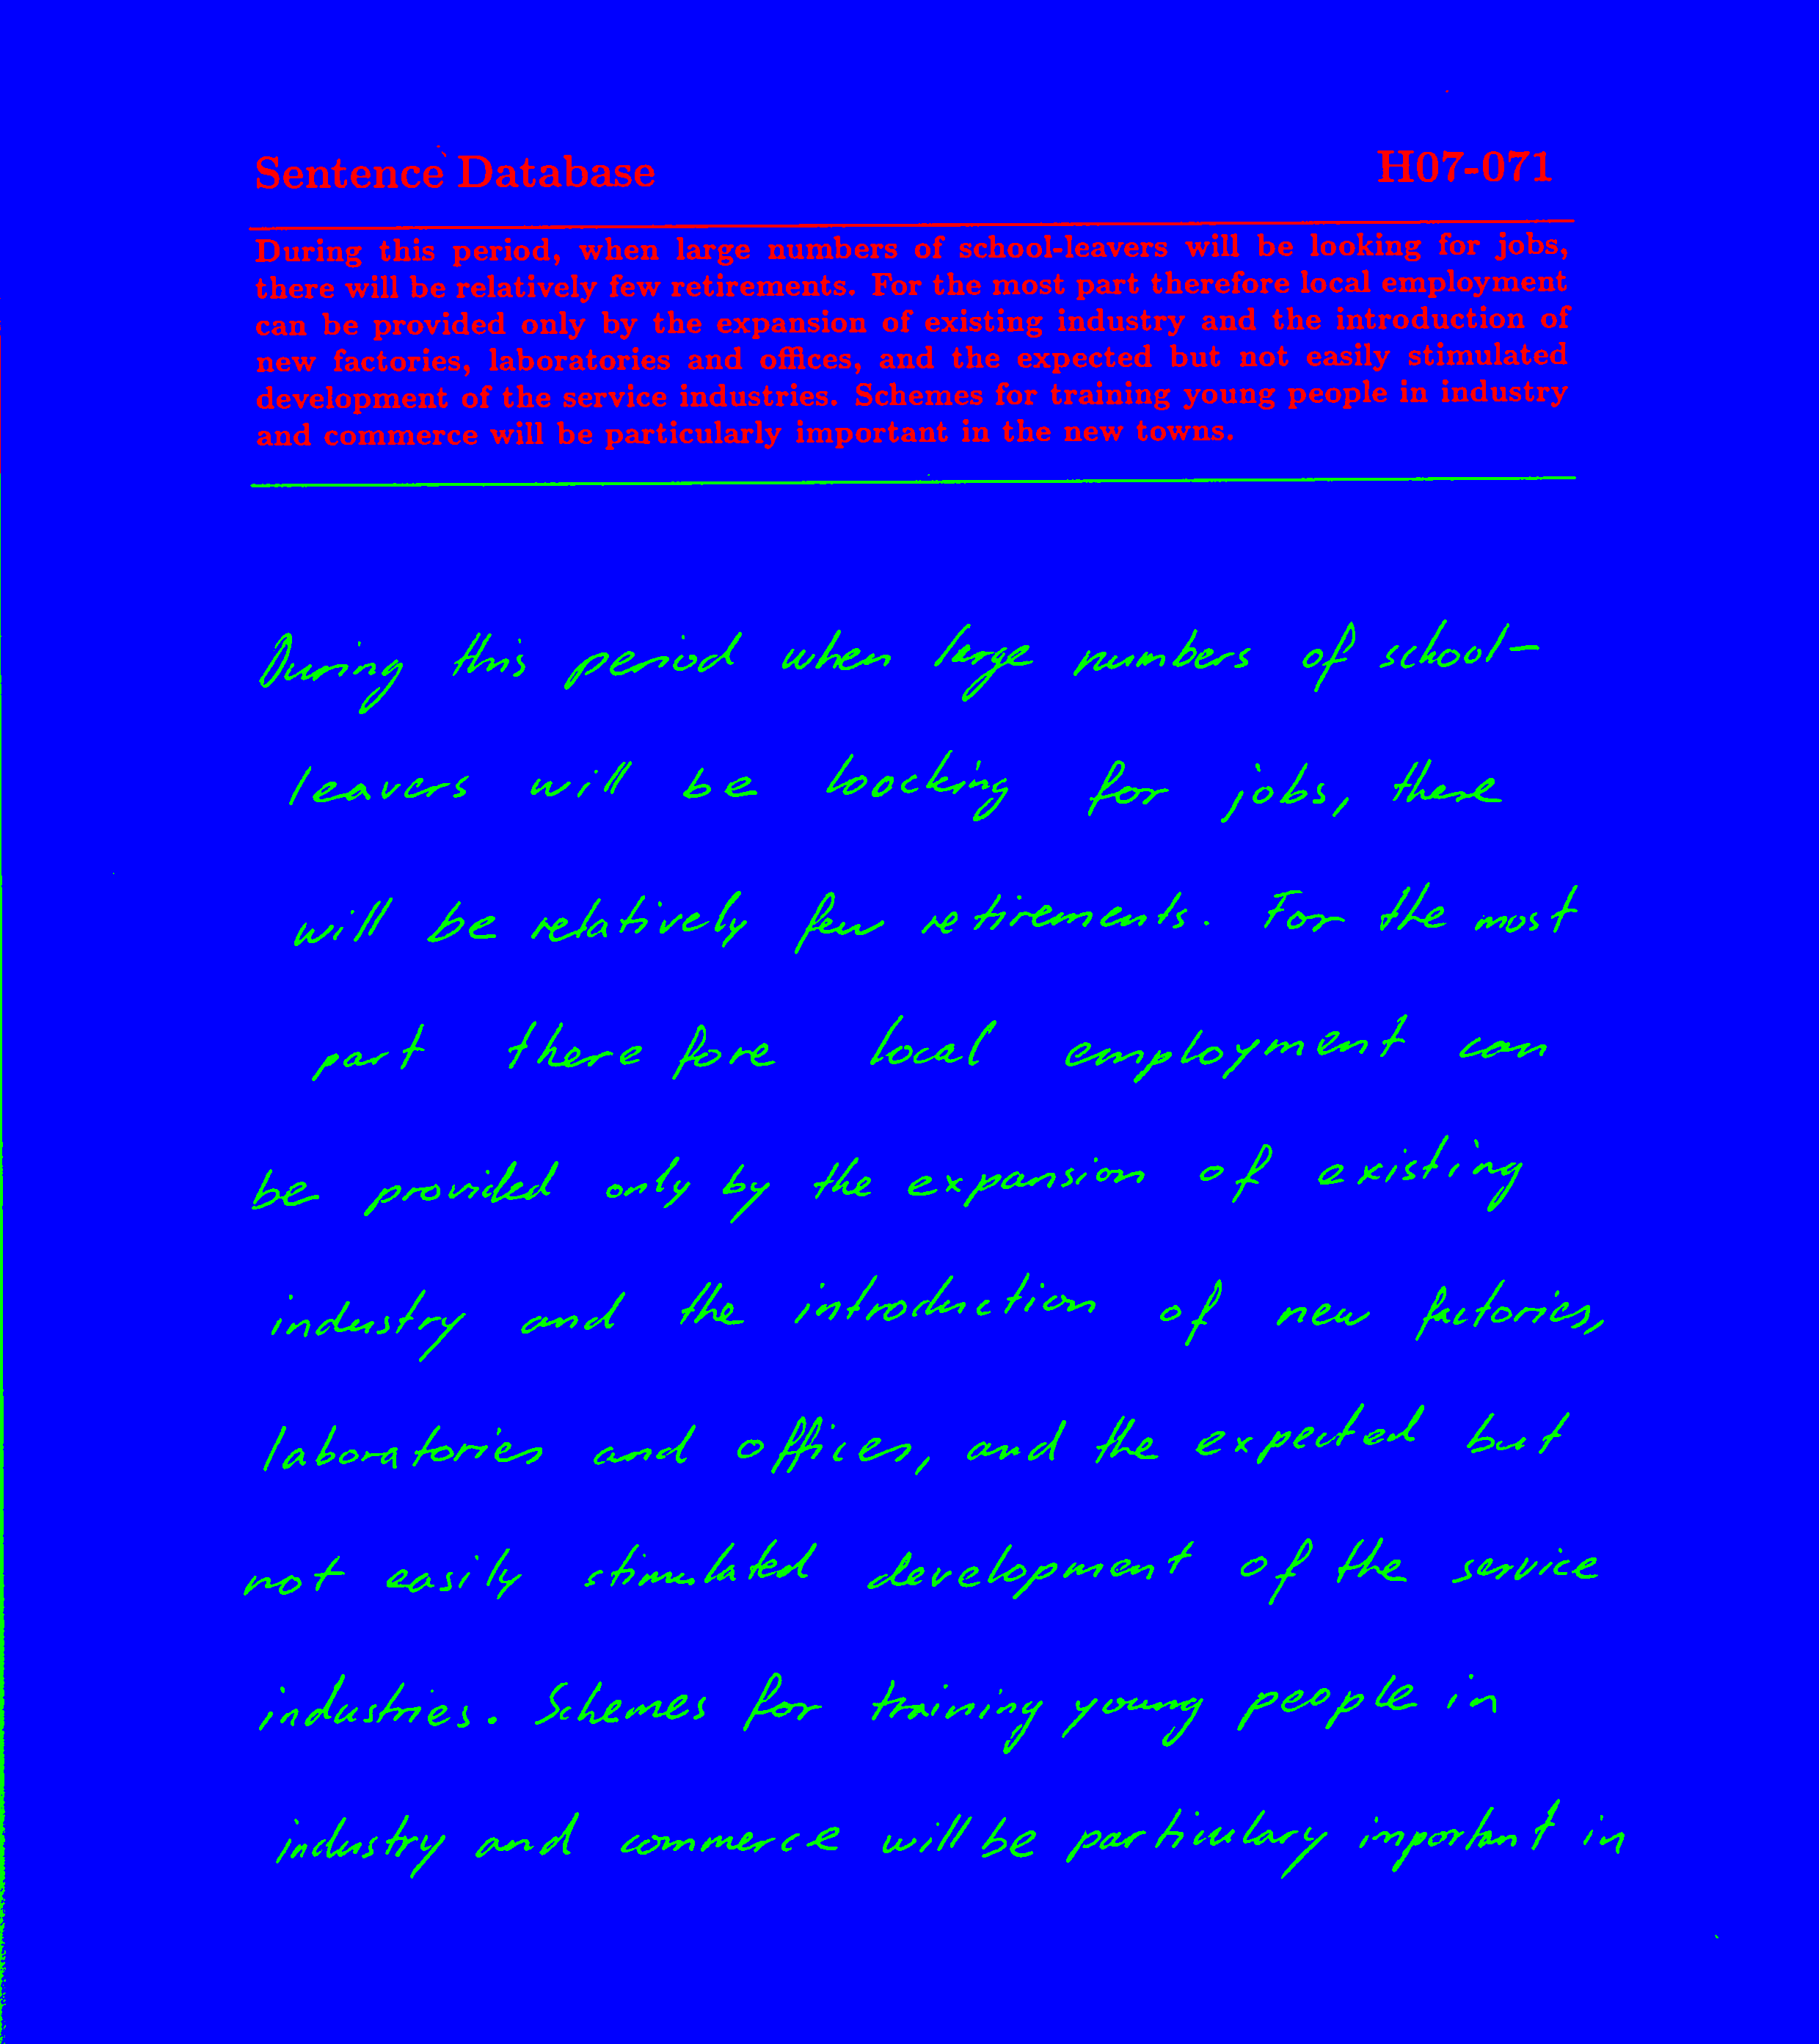 Sentence Database H07-071
During this period, when large numbers of school-leavers will be looking for jobs,
there will be relatively few retirements. For the most part therefore local employment
can be provided only by the expansion of existing industry and the introduction of
new factories, laboratories and offices, and the expected but not easily stimulated
development of the service industries. Schemes for training young people in industry
and commerce will be particularly important in the new towns.
During this period when large numbers of school-
leavers will be loocking for jobs, there
will be relatively few retirements. For the most
part therefore local employment can
be provided only by the expansion of existing
industry and the introduction of new factories,
laboratories and offices, and the expected but
not easily stimulated development of the service
industries. Schemes for training young people in
industry and commerce will be particulary important in